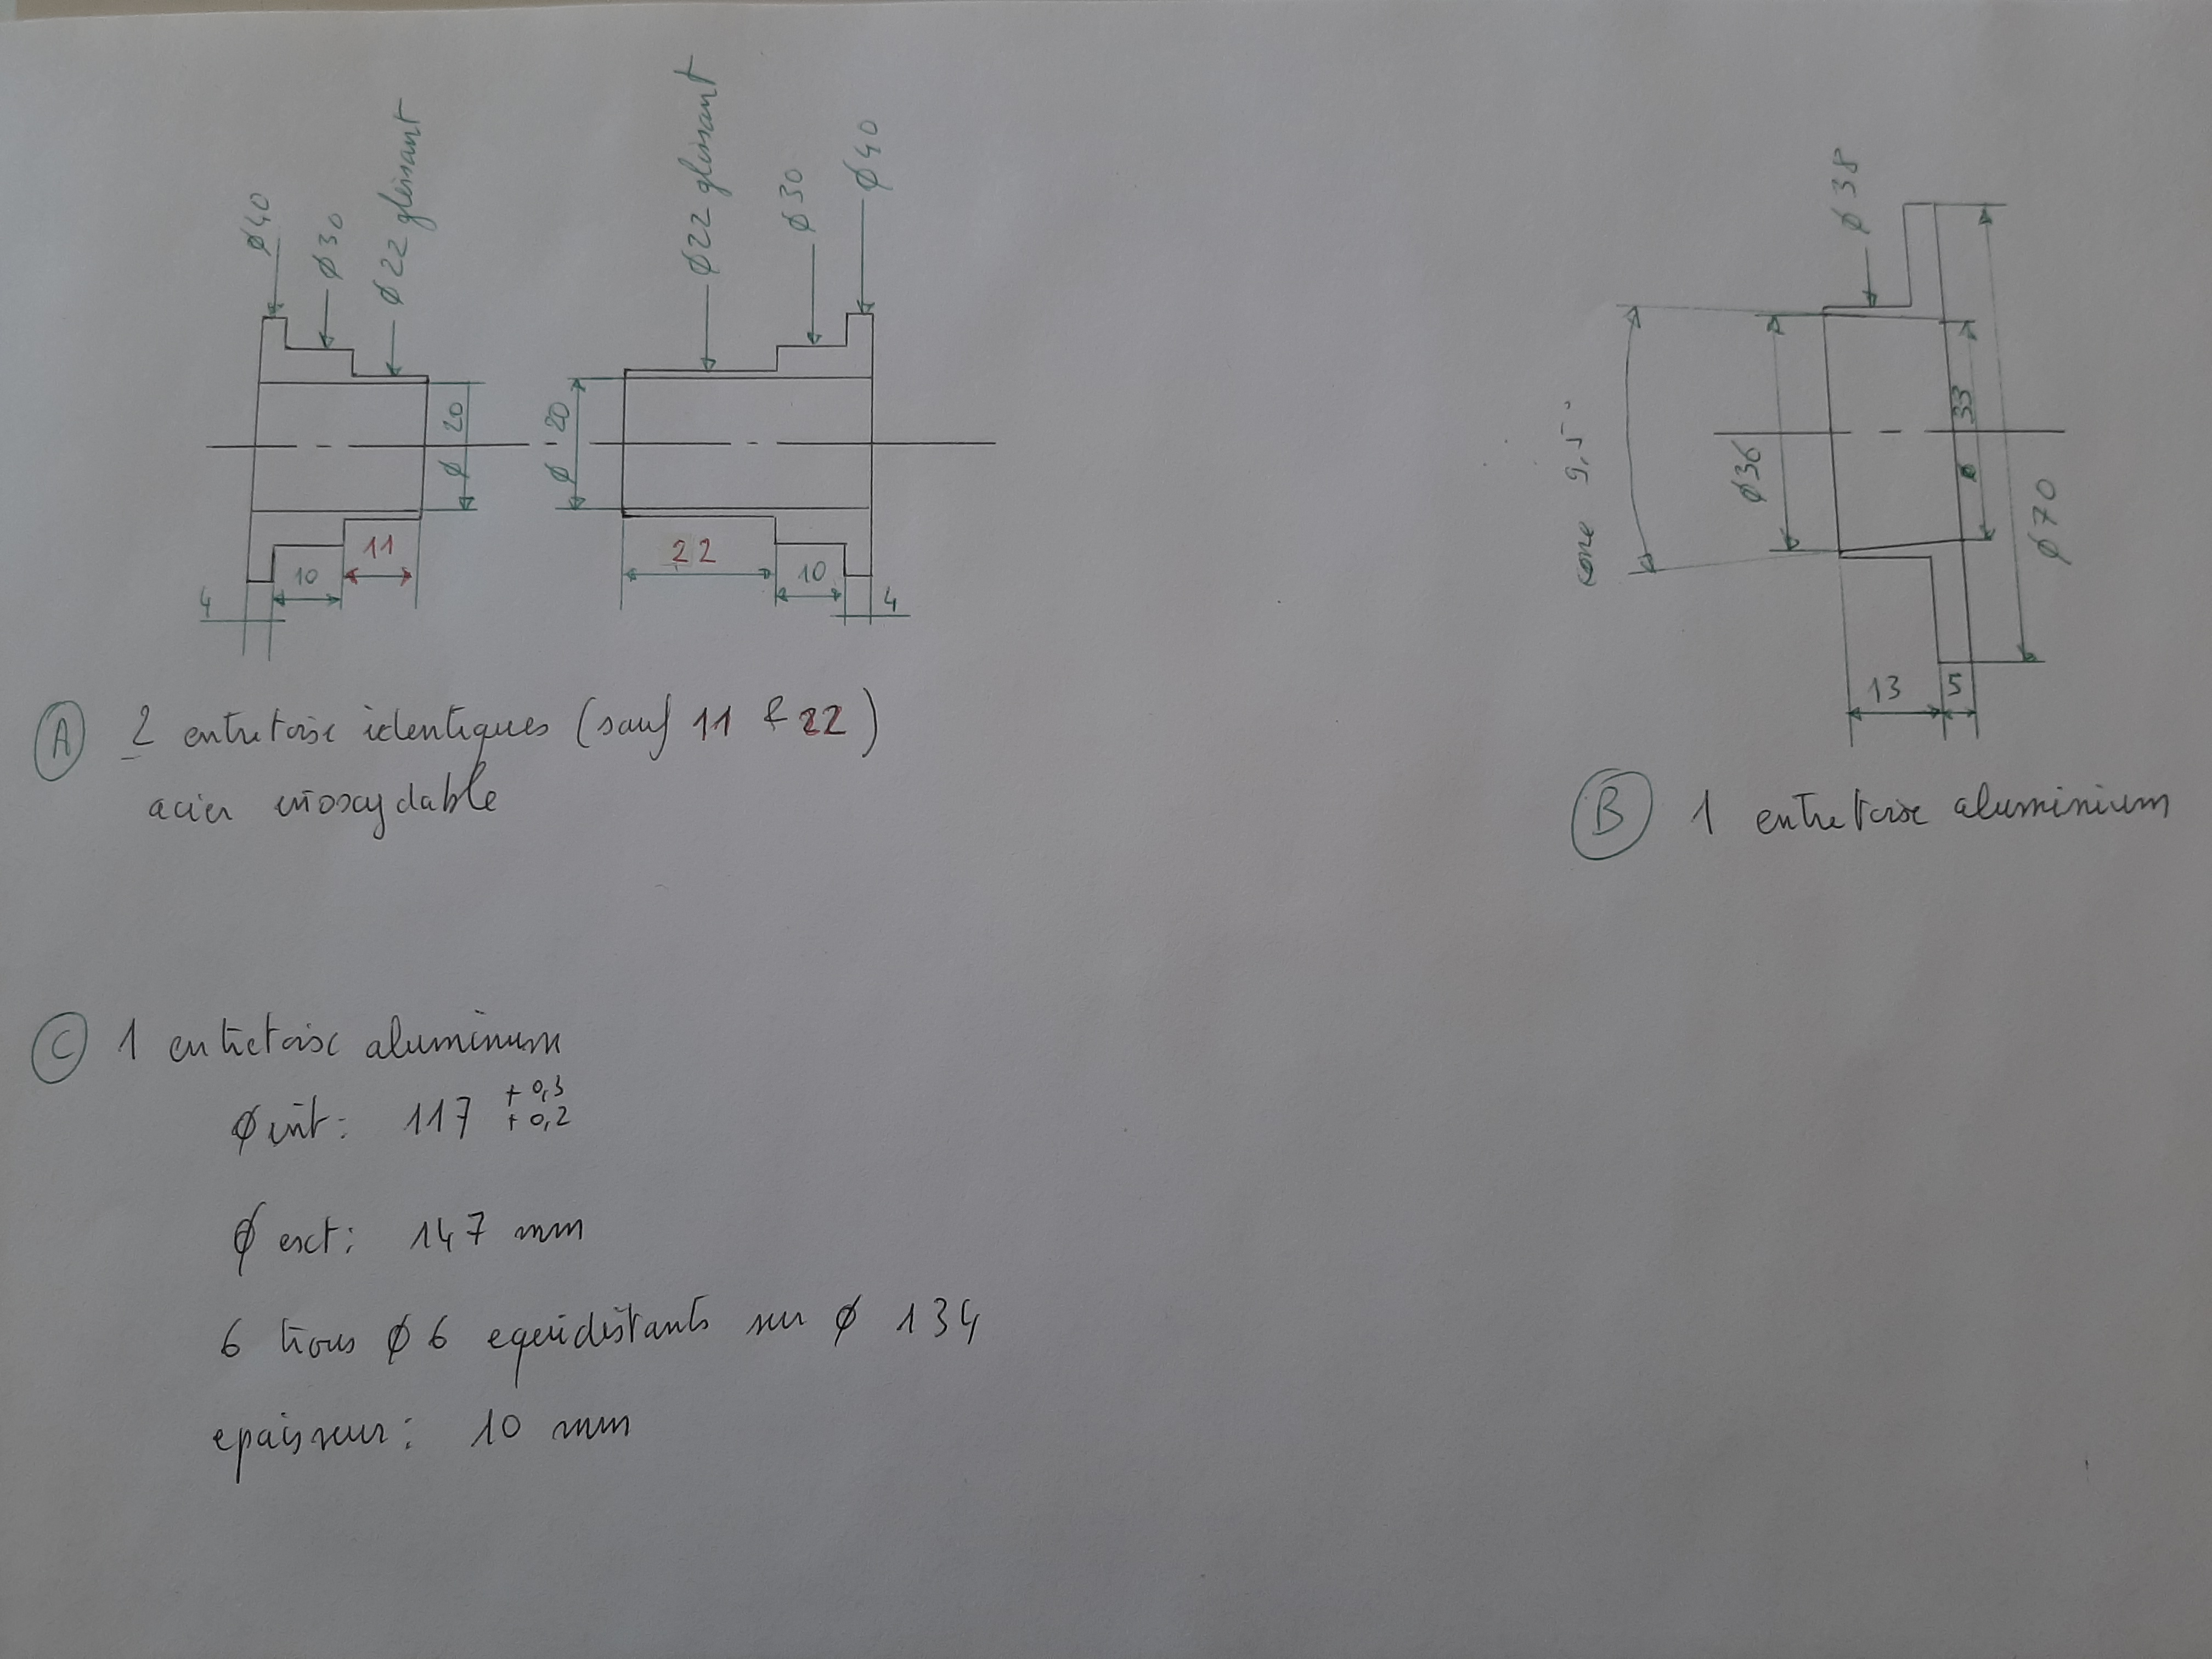 Ø40
Ø30
Ø22 glissant
Ø 20
11
10
4
Ø22 glissant
Ø30
Ø40
Ø 20
22
10
4
(A) 2 entretoise identiques (sauf 11 & 22)
acier inoxydable
Ø 38
cone 9,5°
Ø36
Ø 33
Ø 70
13
5
(B) 1 entretoise aluminium
(C) 1 entretoise aluminum
Ø int: 117 +0,3
+0,2
Ø ext: 147 mm
6 trous Ø 6 equidistants sur Ø 134
epaisseur: 10 mm